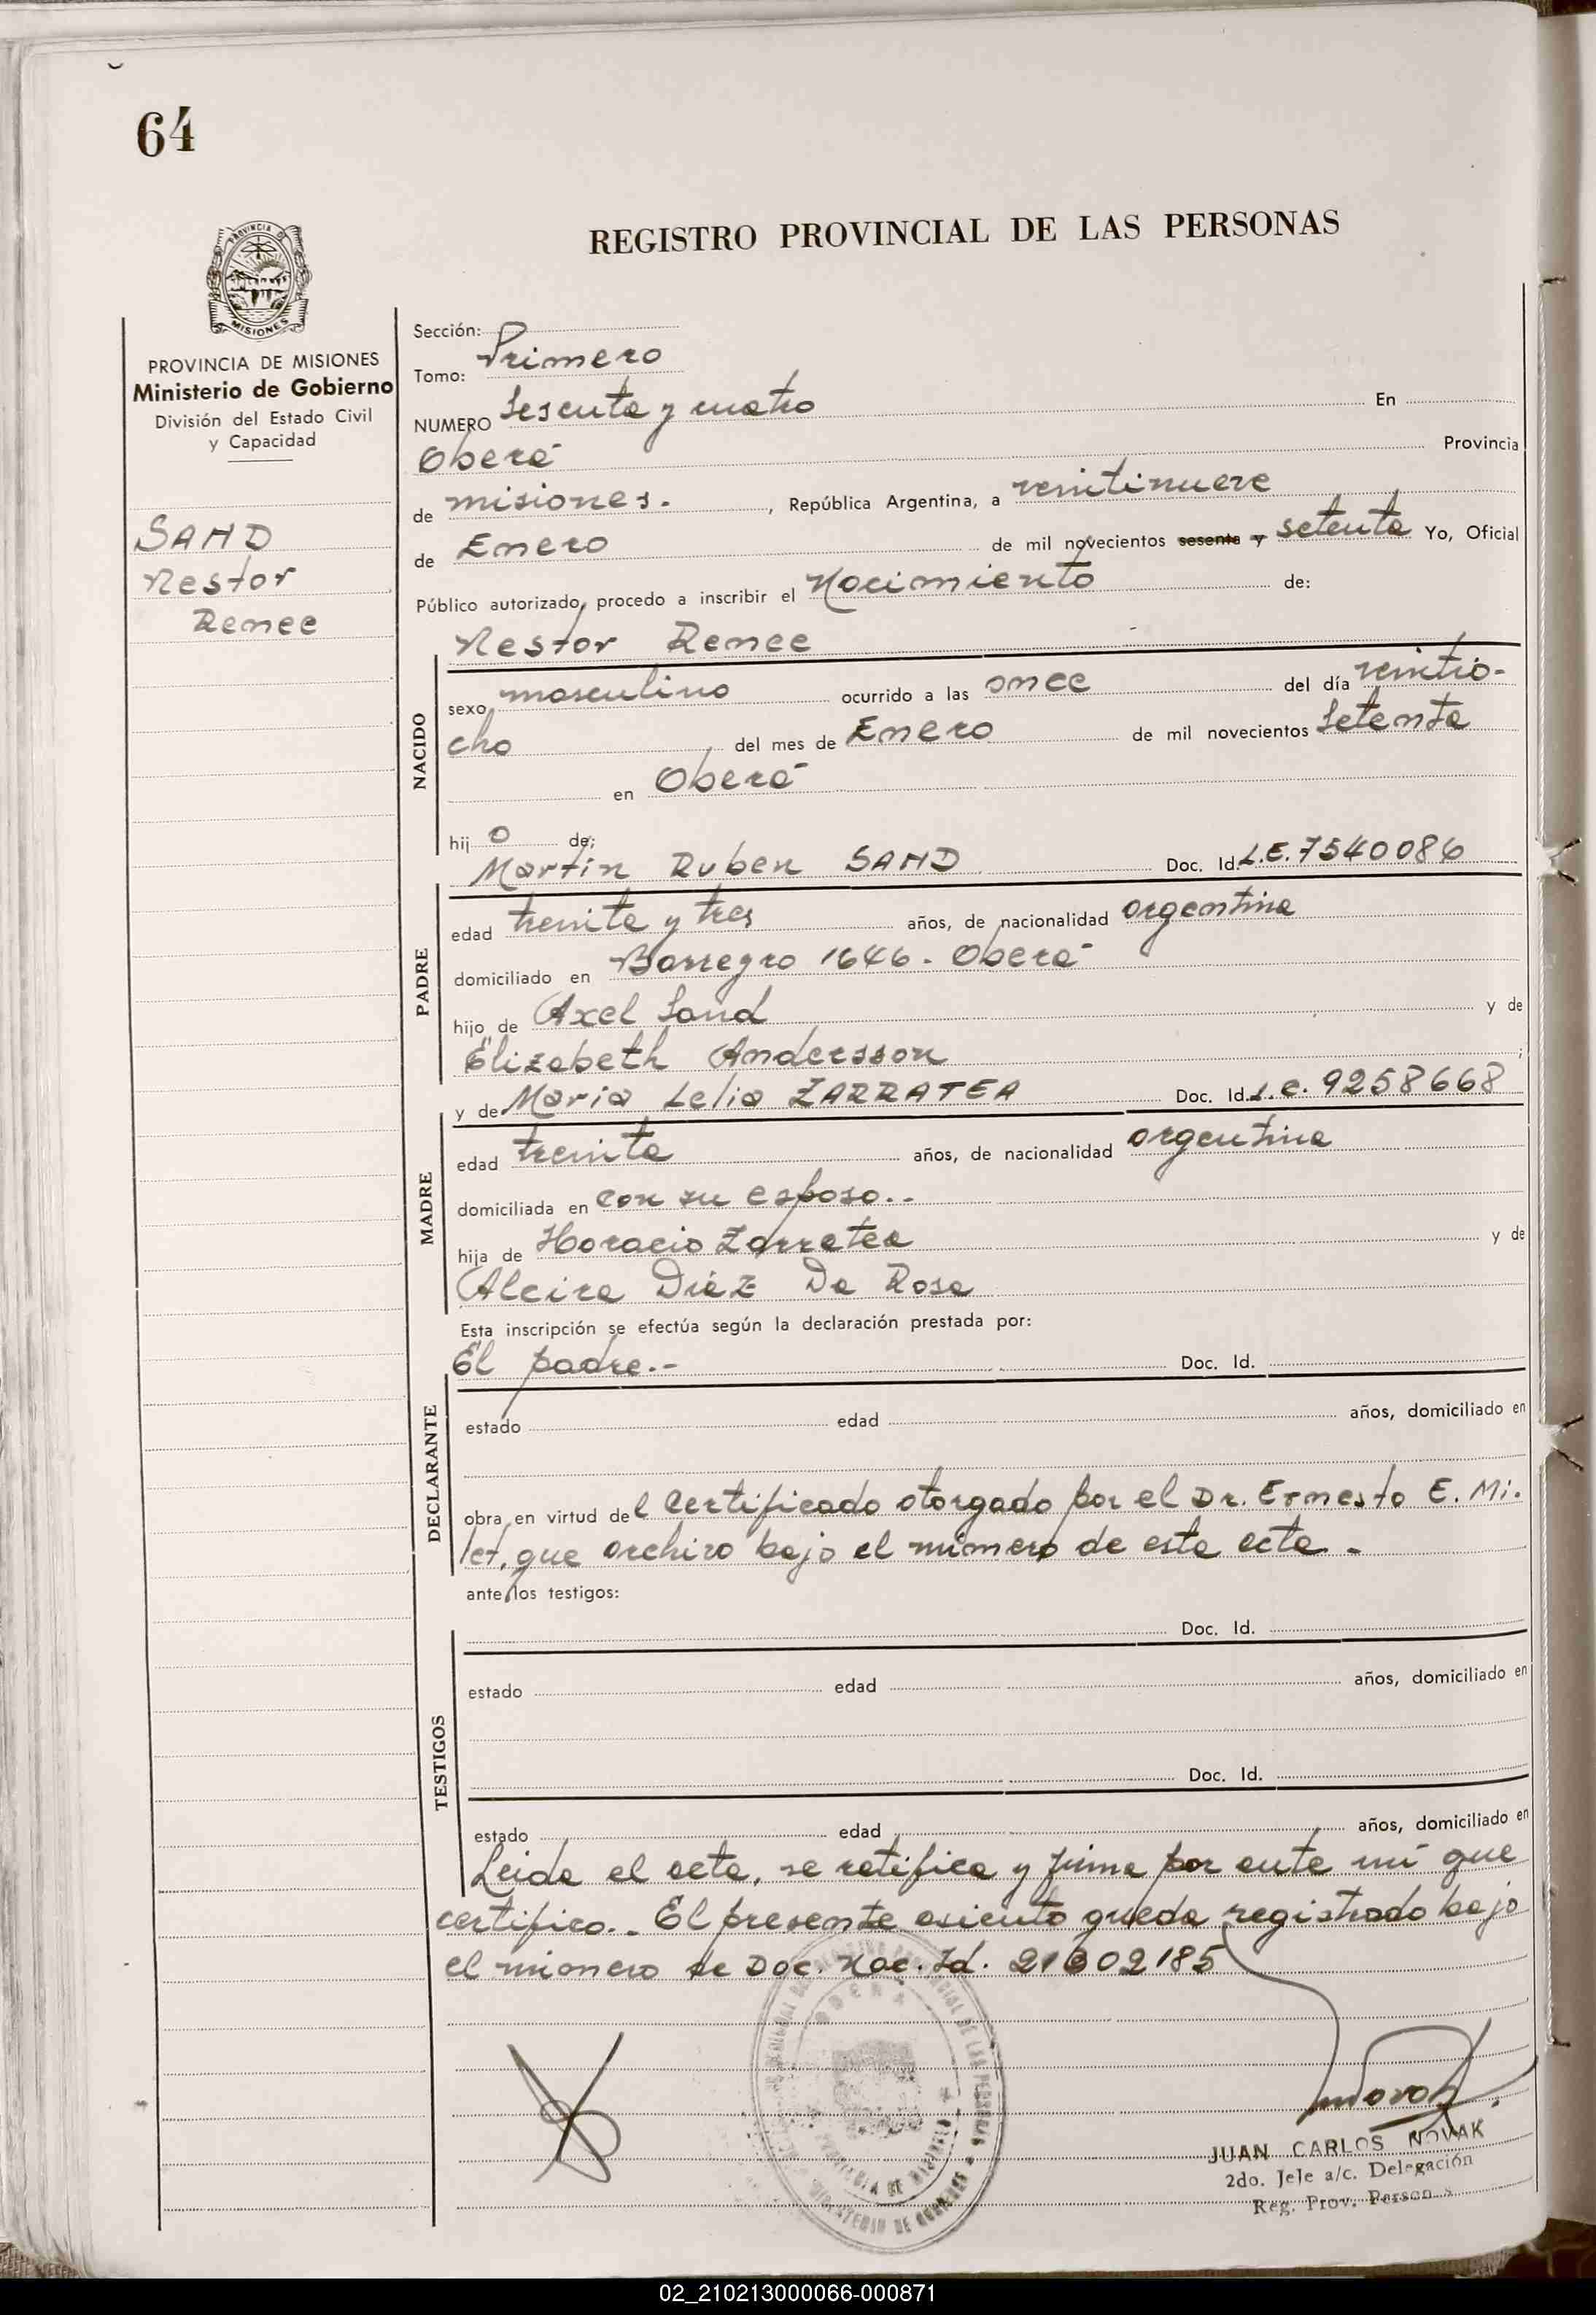 64
REGISTRO PROVINCIAL DE LAS PERSONAS
PROVINCIA DE MISIONES
PROVINCIA DE MISIONES
Ministerio de Gobierno
División del Estado Civil
y Capacidad
SAND
Nestor
Renee
Sección:
Tomo: Primero
NUMERO Sesenta y cuatro En
Oberá Provincia
de misiones. , República Argentina, a veintinueve
de Enero de mil novecientos sesenta y setenta Yo, Oficial
Público autorizado, procedo a inscribir el Nacimiento de:
Nestor Renee
NACIDO
sexo masculino ocurrido a las once del día veintio-
cho del mes de Enero de mil novecientos setenta
en Oberá
hij o de;
Martín Ruben SAND Doc. Id. L.E. 7540086
PADRE
edad treinta y tres años, de nacionalidad argentina
domiciliado en Borregro 1646 - Oberá
hijo de Axel Sand y de
Elizabeth Andersson ;
y de Maria Lelia ZARRATEA Doc. Id. L.C. 9258668
MADRE
edad treinta años, de nacionalidad argentina
domiciliada en con su esposo.-
hija de Horacio Zarratea y de
Alcira Diéz Da Rosa
Esta inscripción se efectúa según la declaración prestada por:
El padre.- Doc. Id.
DECLARANTE
estado edad años, domiciliado en
obra en virtud del Certificado otorgado por el Dr. Ernesto E. Mi-
let, que archivo bajo el número de esta acta -
ante los testigos:
Doc. Id.
TESTIGOS
estado edad años, domiciliado en
Doc. Id.
estado edad años, domiciliado en
Leida el acta, se ratifica y firma por ante mi que
certifico.- El presente asiento queda registrado bajo
el número de Doc. Nac. Id. 21302185
OBERA
PROVINCIA DE MISIONES
MINISTERIO DE GOBIERNO
JUAN CARLOS NOVAK
2do. Jefe a/c. Delegación
Reg. Prov. Person s
02_210213000066-000871